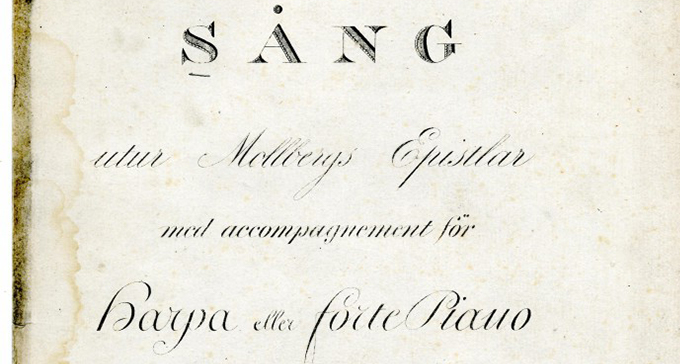 SÅNG
utur Mollbergs Epistlar
med accompagnement för
Harpa eller forte Piano